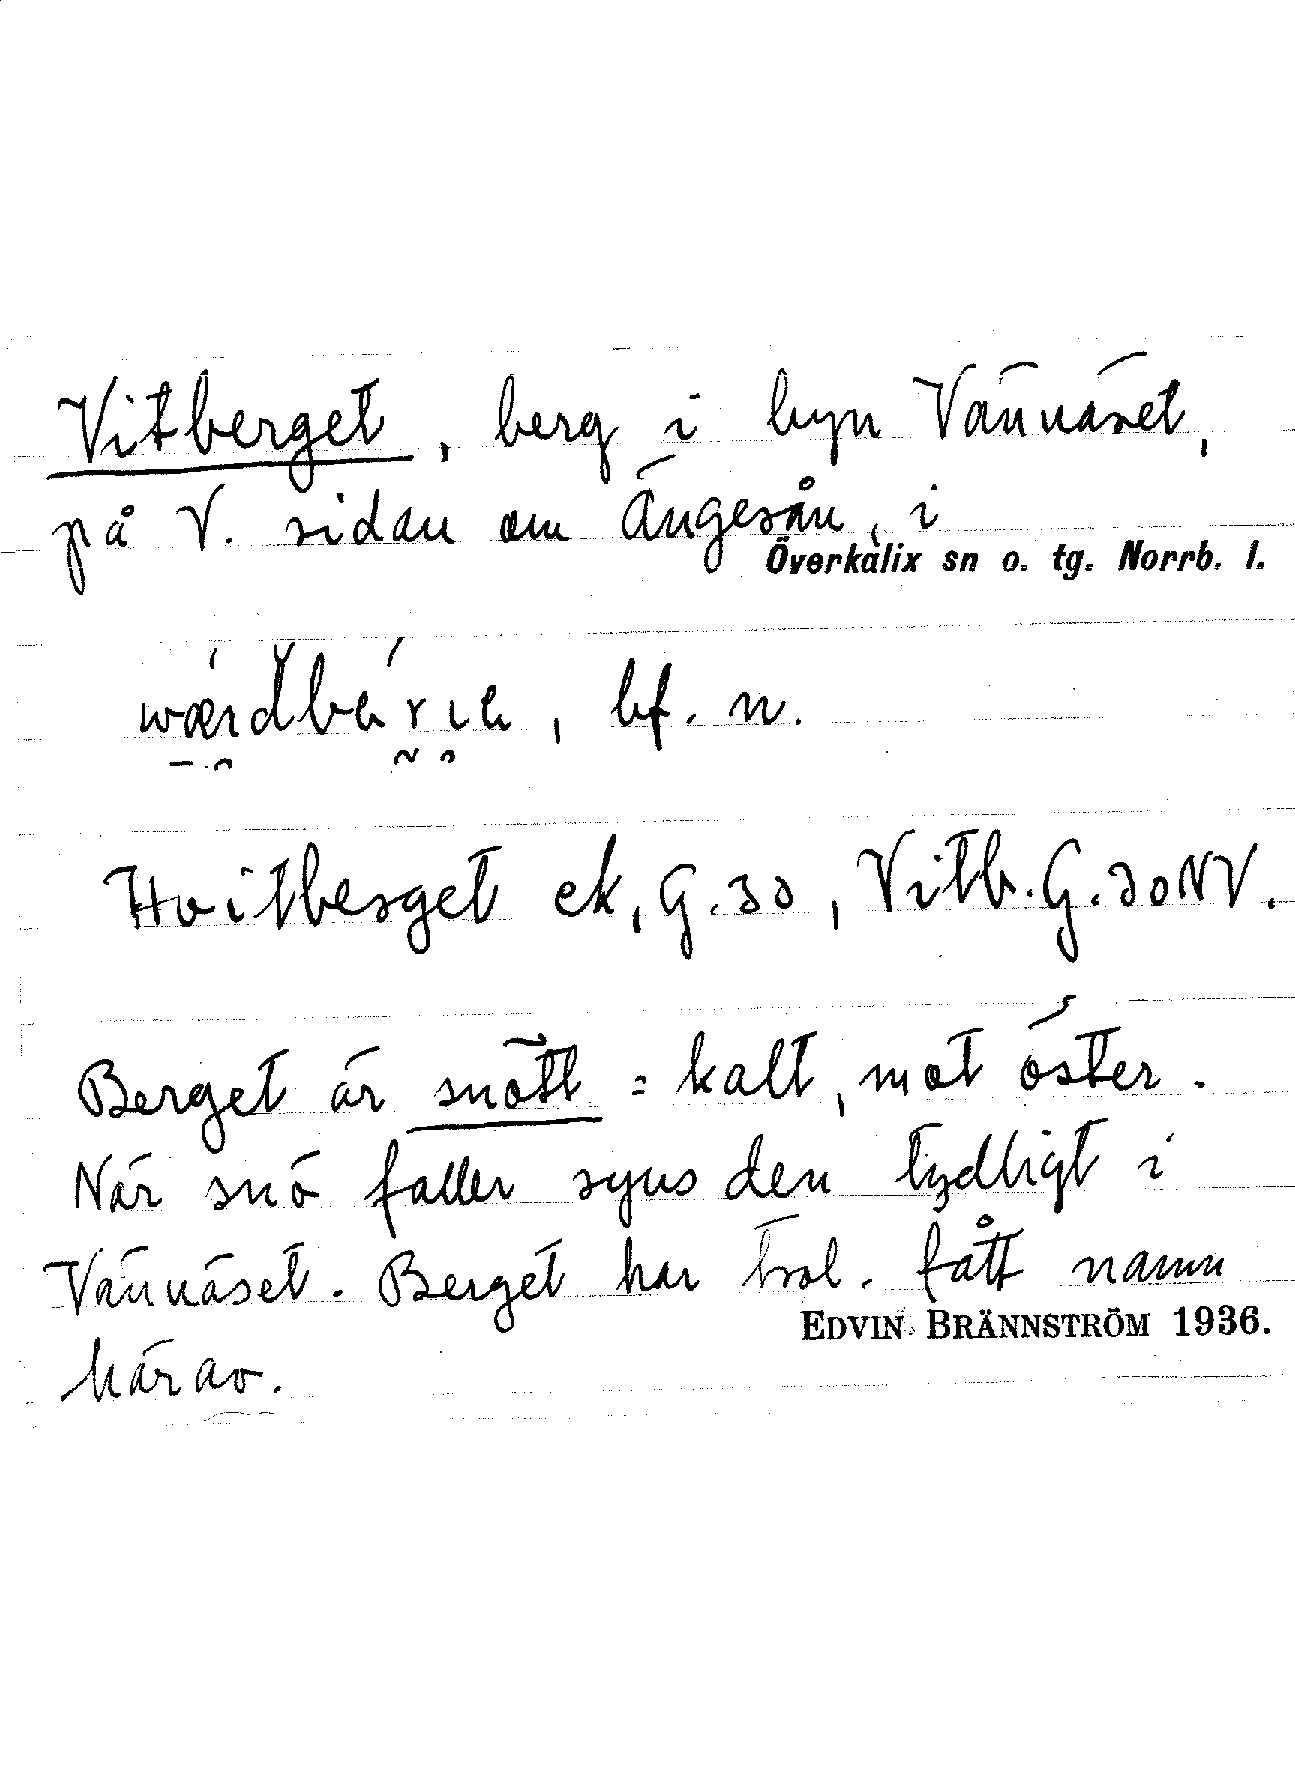 Vitberget, berg i byn Vännäset,
på V. sidan om Ängesån, i
Överkalix sn o. tg. Norrb. l.
bf. n.
Hvitberget ek, G. 30, Vitb. G. 30 NV.
Berget är snött = kalt, mot öster.
När snö faller synes den tydligt i
Vännäset. Berget har trol. fått namn
EDVIN BRÄNNSTRÖM 1936.
härav.